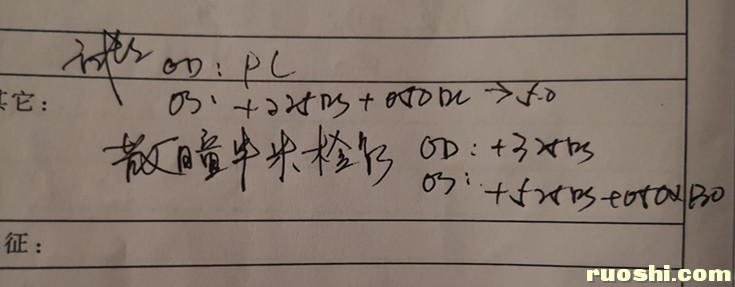 试镜 OD: PL
其它: OS: +2.25DS+0.50DC→5.0
散瞳半米检影 OD: +3.25DS
OS: +5.25DS+0.50X130
征:
ruoshi.com